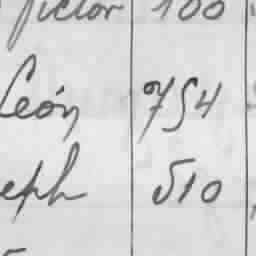 Victor 100
León 754
eph 510